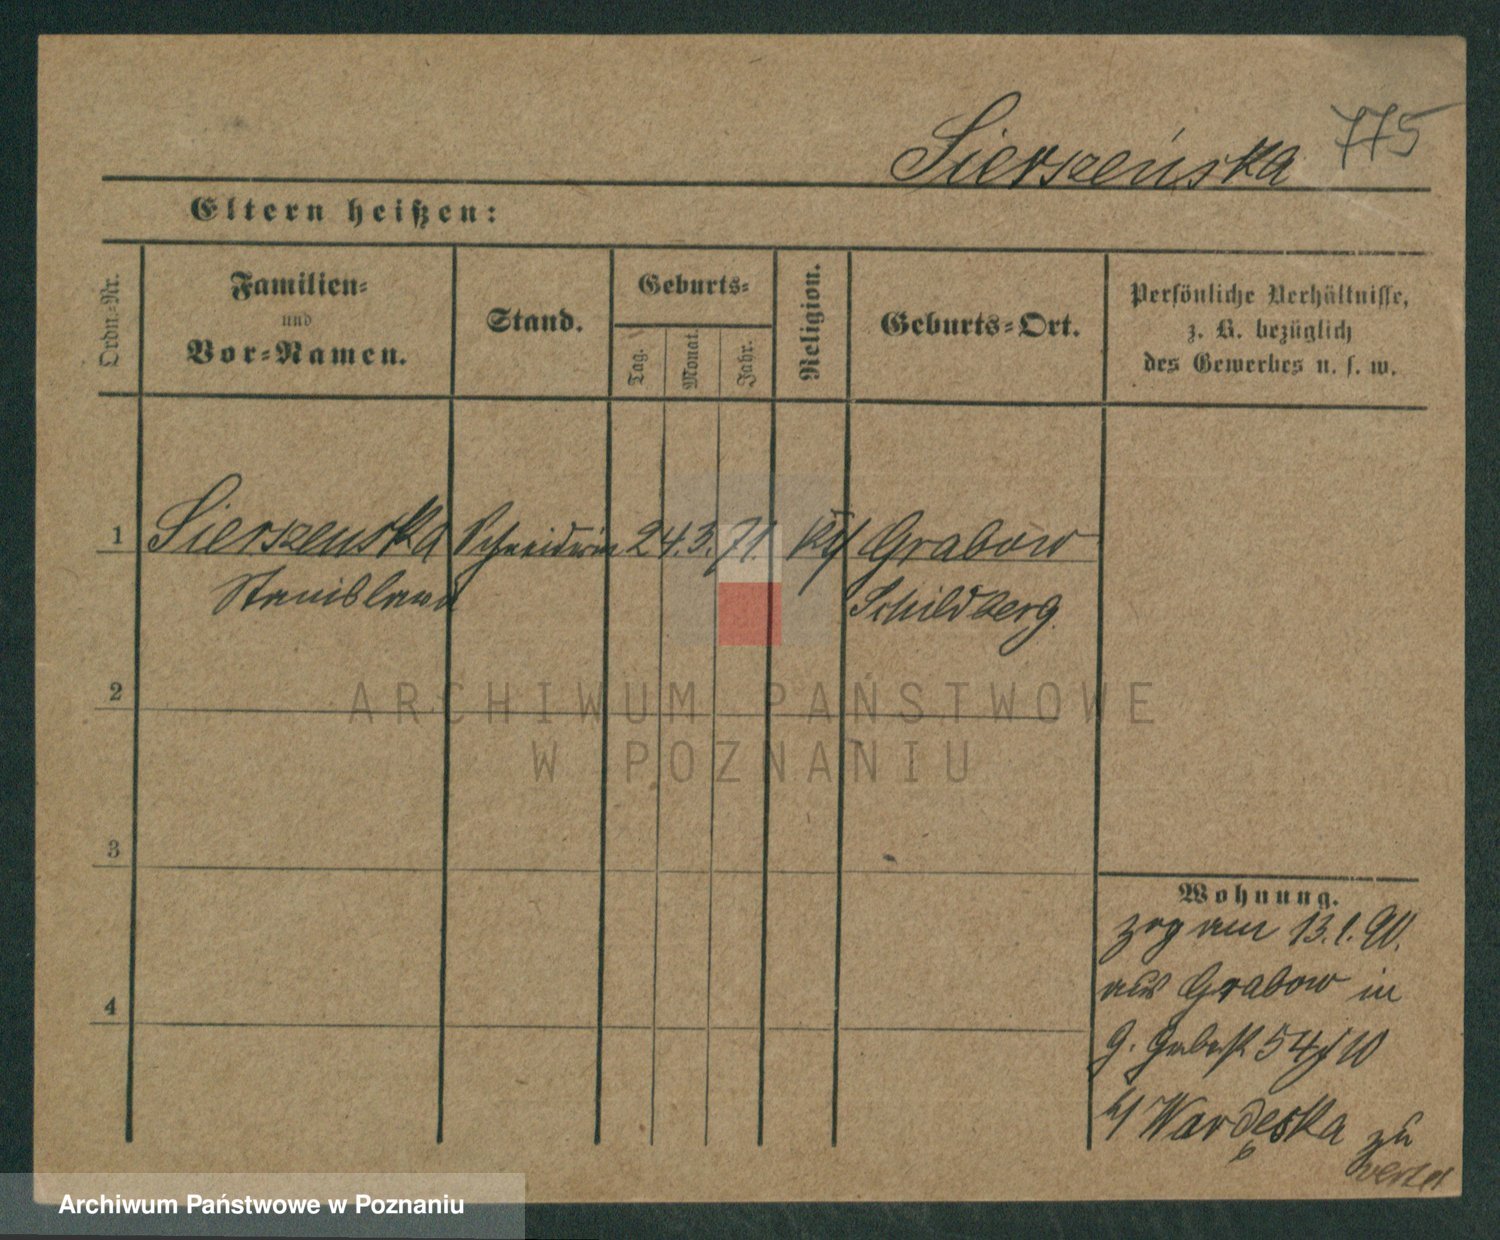 Sierszeńska 775
Eltern heißen:
Ordn.-Nr.
Familien-
und
Vor-Namen.
Stand.
Geburts-
Tag.
Monat.
Jahr.
Religion.
Geburts-Ort.
Persönliche Verhältnisse,
z. B. bezüglich
des Gewerbes u. s. w.
1 Sierszenska Schneiderin 24. 3. 71. Grabow
Stanislawa Schildberg
2
3
4
Wohnung.
zog am 13. 1. 90.
aus Grabow in
54/10
zu
ARCHIWUM PAŃSTWOWE
W POZNANIU
Archiwum Państwowe w Poznaniu